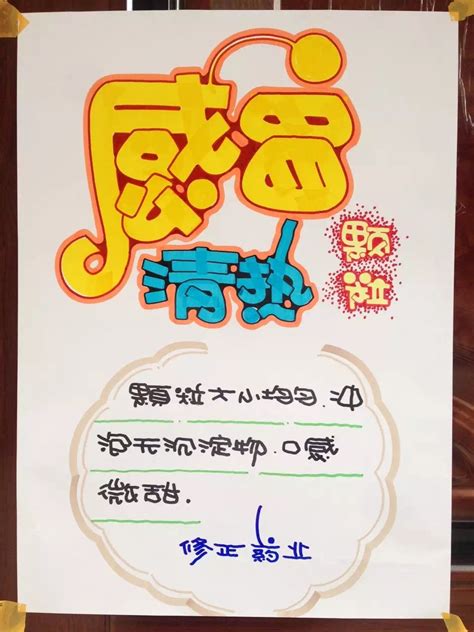 感冒
清热
颗粒
顆粒大小均匀.冲
泡无沉淀物.口感
微甜.
修正药业